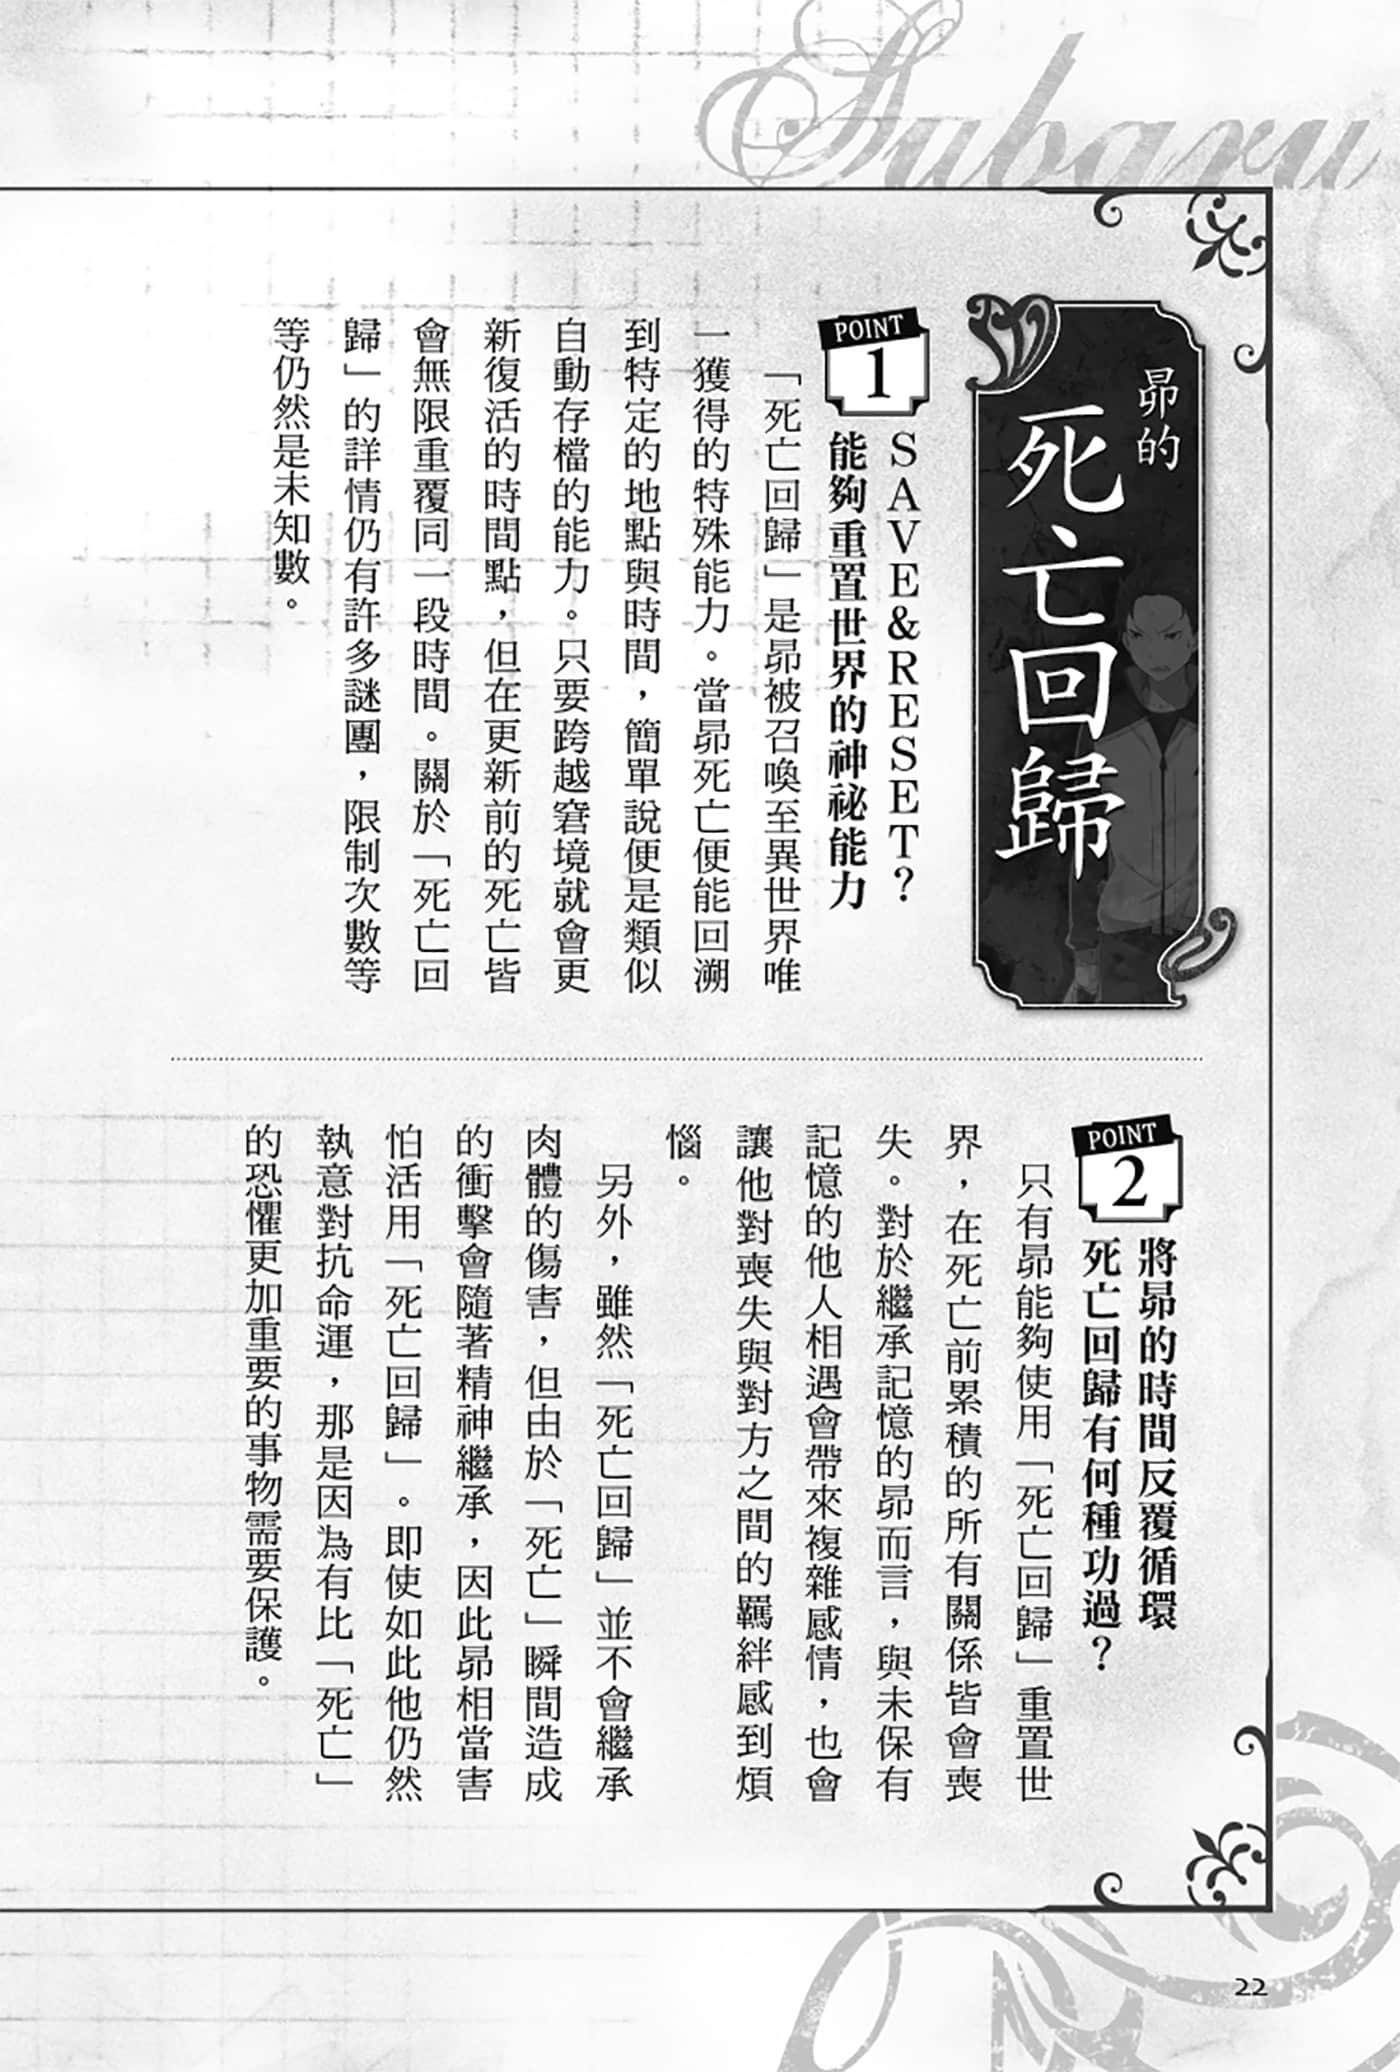 Subaru
昴的
死亡回歸
POINT
1
SAVE&RESET？
能夠重置世界的神祕能力
「死亡回歸」是昴被召喚至異世界唯
一獲得的特殊能力。當昴死亡便能回溯
到特定的地點與時間，簡單說便是類似
自動存檔的能力。只要跨越窘境就會更
新復活的時間點，但在更新前的死亡皆
會無限重覆同一段時間。關於「死亡回
歸」的詳情仍有許多謎團，限制次數等
等仍然是未知數。
POINT
2
將昴的時間反覆循環
死亡回歸有何種功過？
只有昴能夠使用「死亡回歸」重置世
界，在死亡前累積的所有關係皆會喪
失。對於繼承記憶的昴而言，與未保有
記憶的他人相遇會帶來複雜感情，也會
讓他對喪失與對方之間的羈絆感到煩
惱。
另外，雖然「死亡回歸」並不會繼承
肉體的傷害，但由於「死亡」瞬間造成
的衝擊會隨著精神繼承，因此昴相當害
怕活用「死亡回歸」。即使如此他仍然
執意對抗命運，那是因為有比「死亡」
的恐懼更加重要的事物需要保護。
22